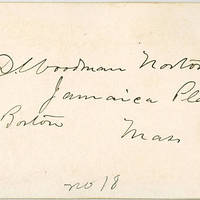 D. Woodman Norto
Jamaica Pla
Boston
Mass
no 18